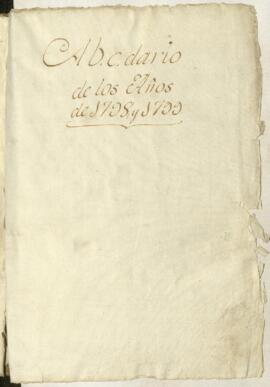 Ab.c.dario
de los Años
de 1798 y 1799